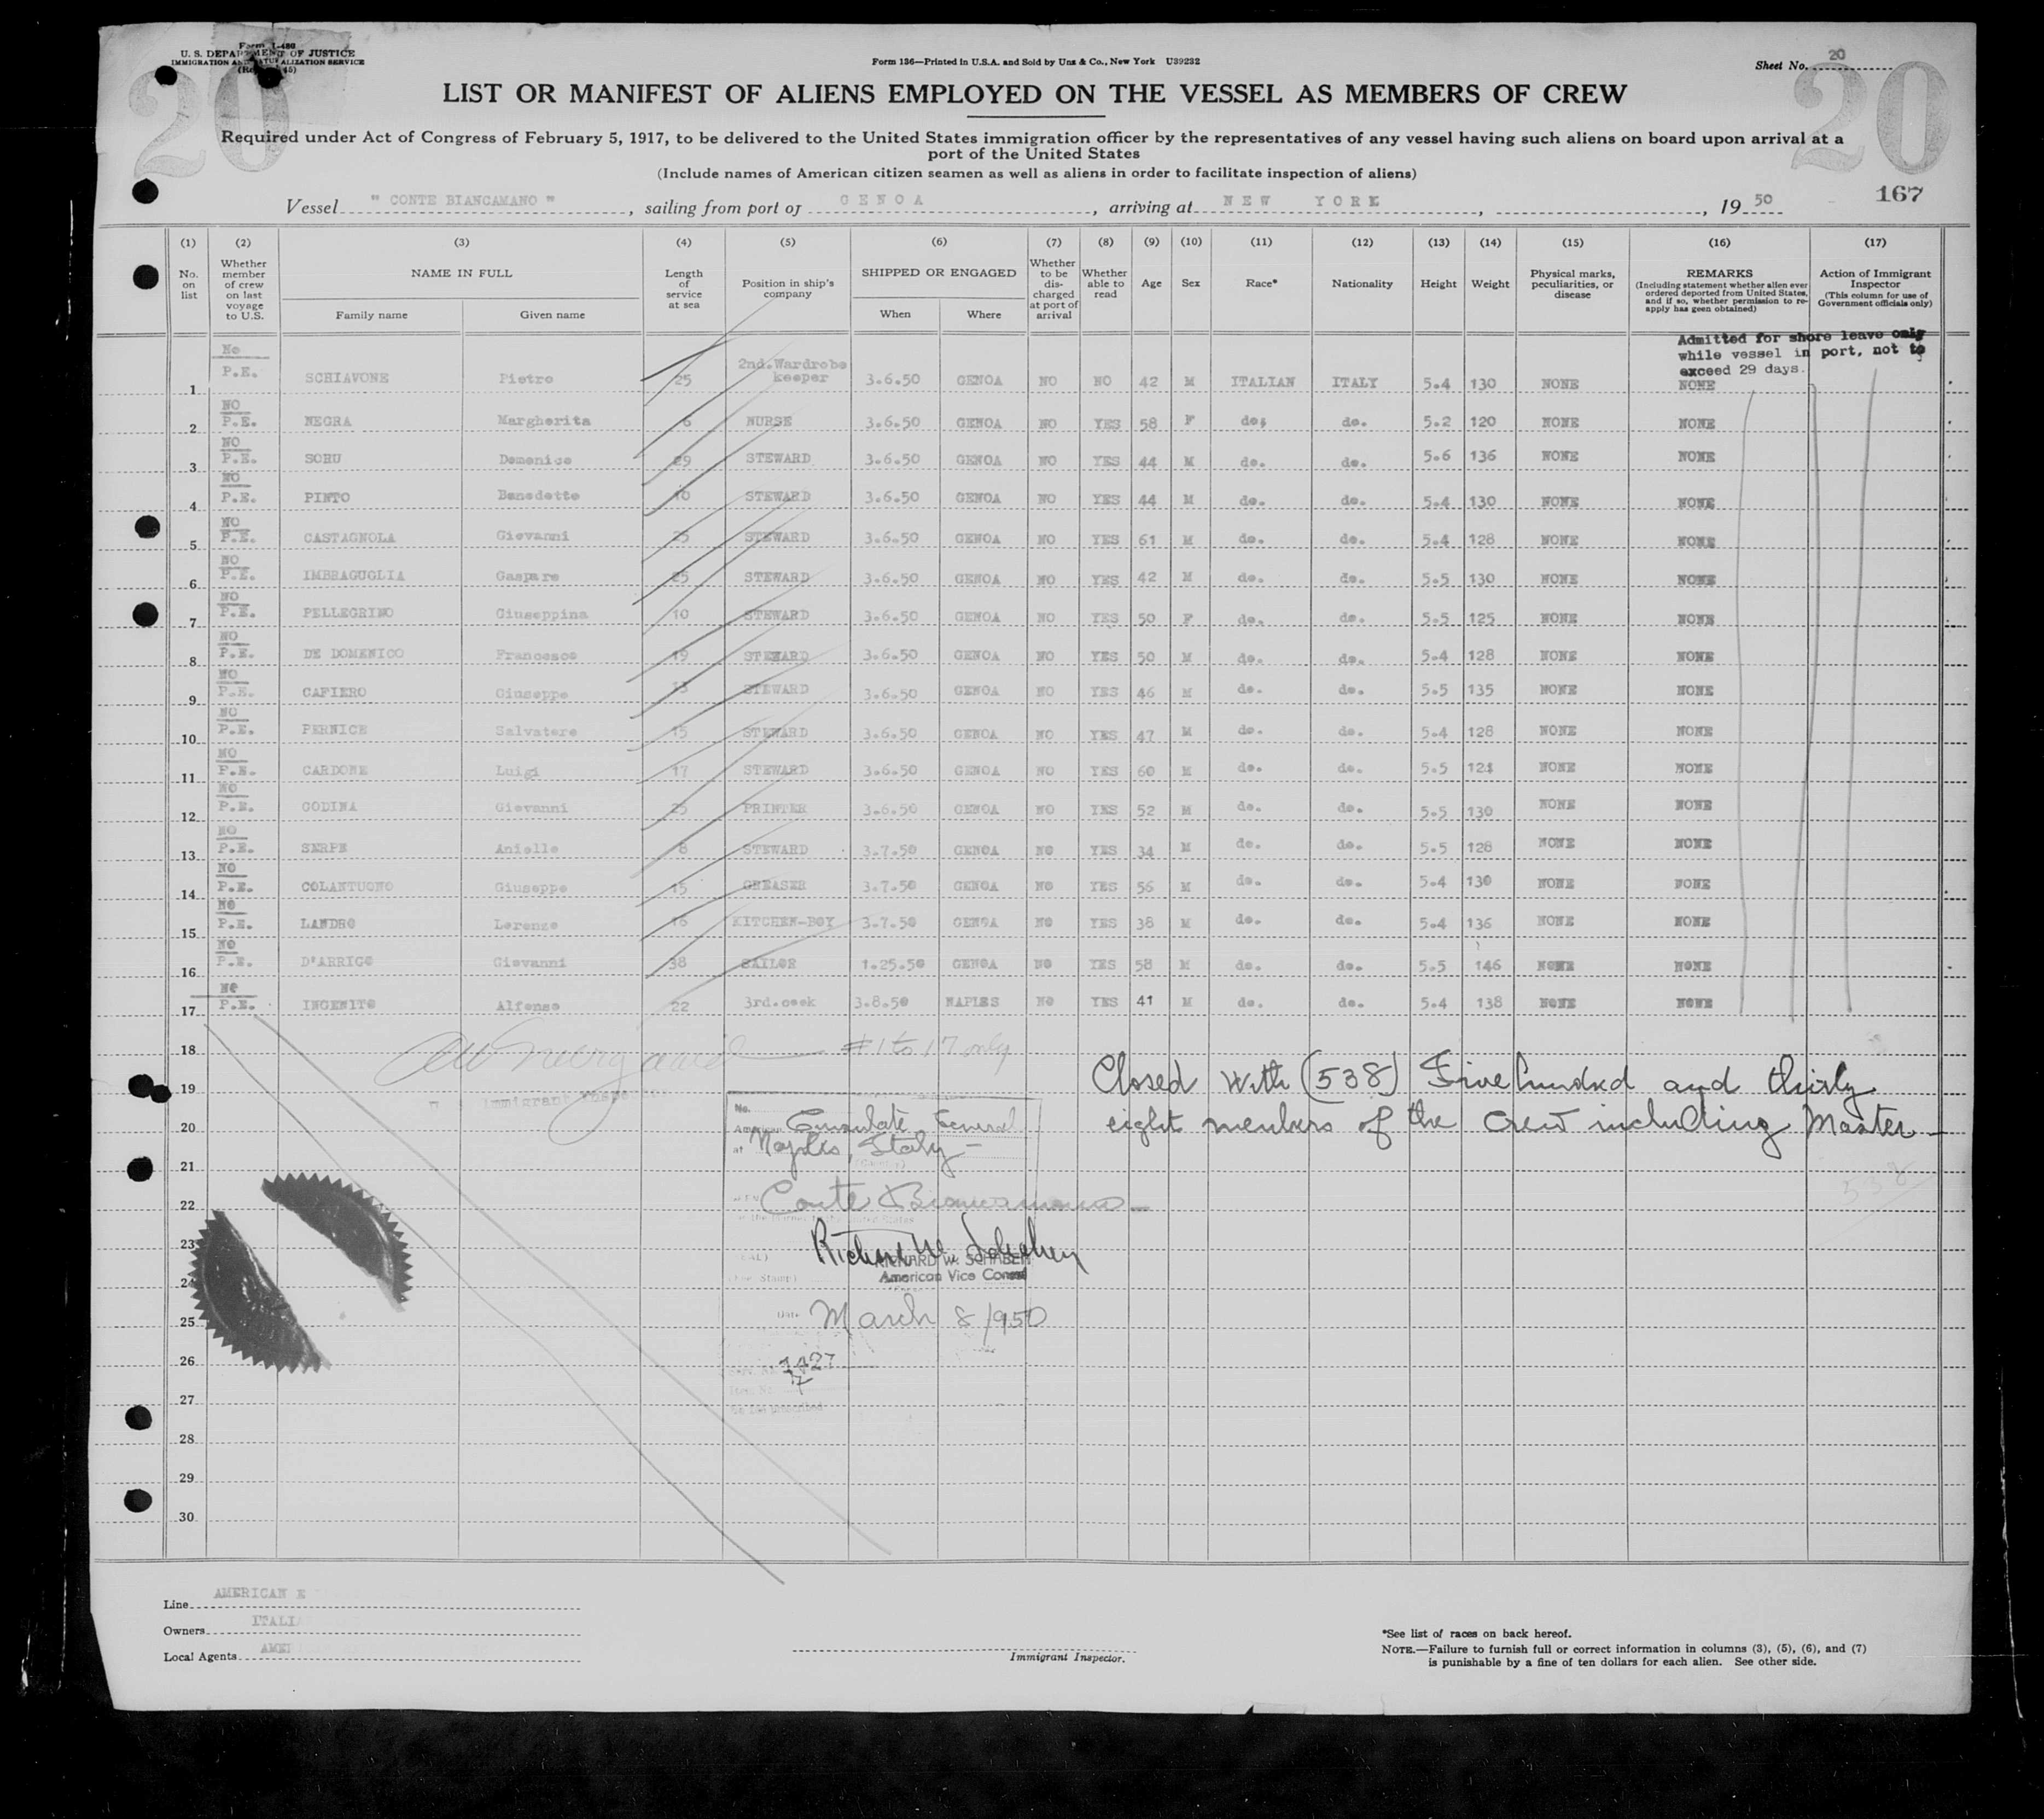 Form I-480
U. S. DEPARTMENT OF JUSTICE
IMMIGRATION AND NATURALIZATION SERVICE
Form 136—Printed in U.S.A. and Sold by Unz & Co., New York U39232
Sheet No. 20
20
20
LIST OR MANIFEST OF ALIENS EMPLOYED ON THE VESSEL AS MEMBERS OF CREW
Required under Act of Congress of February 5, 1917, to be delivered to the United States immigration officer by the representatives of any vessel having such aliens on board upon arrival at a
port of the United States
(Include names of American citizen seamen as well as aliens in order to facilitate inspection of aliens)
167
Vessel " CONTE BIANCAMANO ", sailing from port of GENOA, arriving at NEW YORK, 19 50
(1) (2) (3) (4) (5) (6) (7) (8) (9) (10) (11) (12) (13) (14) (15) (16) (17)
No. on list
Whether member of crew on last voyage to U.S.
NAME IN FULL
Family name
Given name
Length of service at sea
Position in ship's company
SHIPPED OR ENGAGED
When
Where
Whether to be dis-charged at port of arrival
Whether able to read
Age
Sex
Race*
Nationality
Height
Weight
Physical marks, peculiarities, or disease
REMARKS
(Including statement whether alien ever ordered deported from United States, and if so, whether permission to re-apply has geen obtained)
Action of Immigrant Inspector
(This column for use of Government officials only)
Admitted for shore leave only
while vessel in port, not to
exceed 29 days.
1 No P.E. SCHIAVONE Pietro 25 2nd.Wardrobe keeper 3.6.50 GENOA NO NO 42 M ITALIAN ITALY 5.4 130 NONE NONE
2 NO P.E. NEGRA Margherita 6 NURSE 3.6.50 GENOA NO YES 58 F do; do. 5.2 120 NONE NONE
3 NO P.E. SORU Domenico 29 STEWARD 3.6.50 GENOA NO YES 44 M do. do. 5.6 136 NONE NONE
4 NO P.E. PINTO Benedetto 10 STEWARD 3.6.50 GENOA NO YES 44 M do. do. 5.4 130 NONE NONE
5 NO P.E. CASTAGNOLA Giovanni 25 STEWARD 3.6.50 GENOA NO YES 61 M do. do. 5.4 128 NONE NONE
6 NO P.E. IMBRAGUGLIA Gaspare 25 STEWARD 3.6.50 GENOA NO YES 42 M do. do. 5.5 130 NONE NONE
7 NO P.E. PELLEGRINO Giuseppina 10 STEWARD 3.6.50 GENOA NO YES 50 F do. do. 5.5 125 NONE NONE
8 NO P.E. DE DOMENICO Francesco 19 STEWARD 3.6.50 GENOA NO YES 50 M do. do. 5.4 128 NONE NONE
9 NO P.E. CAFIERO Giuseppe 13 STEWARD 3.6.50 GENOA NO YES 46 M do. do. 5.5 135 NONE NONE
10 NO P.E. PERNICE Salvatore 15 STEWARD 3.6.50 GENOA NO YES 47 M do. do. 5.4 128 NONE NONE
11 NO P.E. CARDONE Luigi 17 STEWARD 3.6.50 GENOA NO YES 60 M do. do. 5.5 121 NONE NONE
12 NO P.E. GODINA Giovanni 25 PRINTER 3.6.50 GENOA NO YES 52 M do. do. 5.5 130 NONE NONE
13 NO P.E. SERPE Aniello 8 STEWARD 3.7.50 GENOA NO YES 34 M do. do. 5.5 128 NONE NONE
14 NO P.E. COLANTUONO Giuseppe 15 GREASER 3.7.50 GENOA NO YES 56 M do. do. 5.4 130 NONE NONE
15 NO P.E. LANDRO Lorenzo 16 KITCHEN-BOY 3.7.50 GENOA NO YES 38 M do. do. 5.4 136 NONE NONE
16 NO P.E. D'ARRIGO Giovanni 38 SAILOR 1.25.50 GENOA NO YES 58 M do. do. 5.5 146 NONE NONE
17 NO P.E. INGENITO Alfonso 22 3rd.cook 3.8.50 NAPLES NO YES 41 M do. do. 5.4 138 NONE NONE
18 #1 to 17 only
19 Closed with (538) Five hundred and thirty
Immigrant Inspector
20 eight members of the crew including Master
No.
American Consulate General
at Naples, Italy
21
538
22 Conte Biancamano
23 Richard W. Scheben
24
American Vice Consul
25 Date March 8 1950
26
27
28
29
30
Line AMERICAN E
Owners ITALI
Local Agents AMEI
Immigrant Inspector.
*See list of races on back hereof.
NOTE.—Failure to furnish full or correct information in columns (3), (5), (6), and (7)
is punishable by a fine of ten dollars for each alien. See other side.